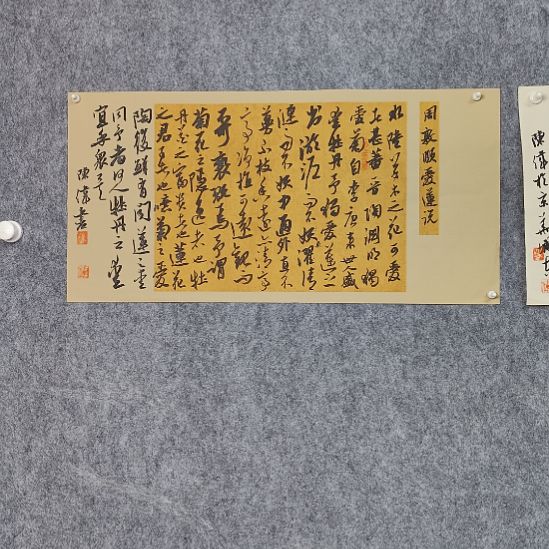 周敦颐爱莲说
水陆草木之花可爱
者甚蕃晋陶渊明独
爱菊自李唐来世人盛
爱牡丹予独爱莲之
出淤泥而不染濯清
涟而不妖中通外直不
蔓不枝香远益清亭
亭净植可远观而
不可亵玩焉予谓
菊花之隐逸者也牡
丹花之富贵者也莲花
之君子者也噫菊之爱
陶后鲜有闻莲之爱
同予者何人牡丹之爱
宜乎众矣
陈伟书
陈伟于京